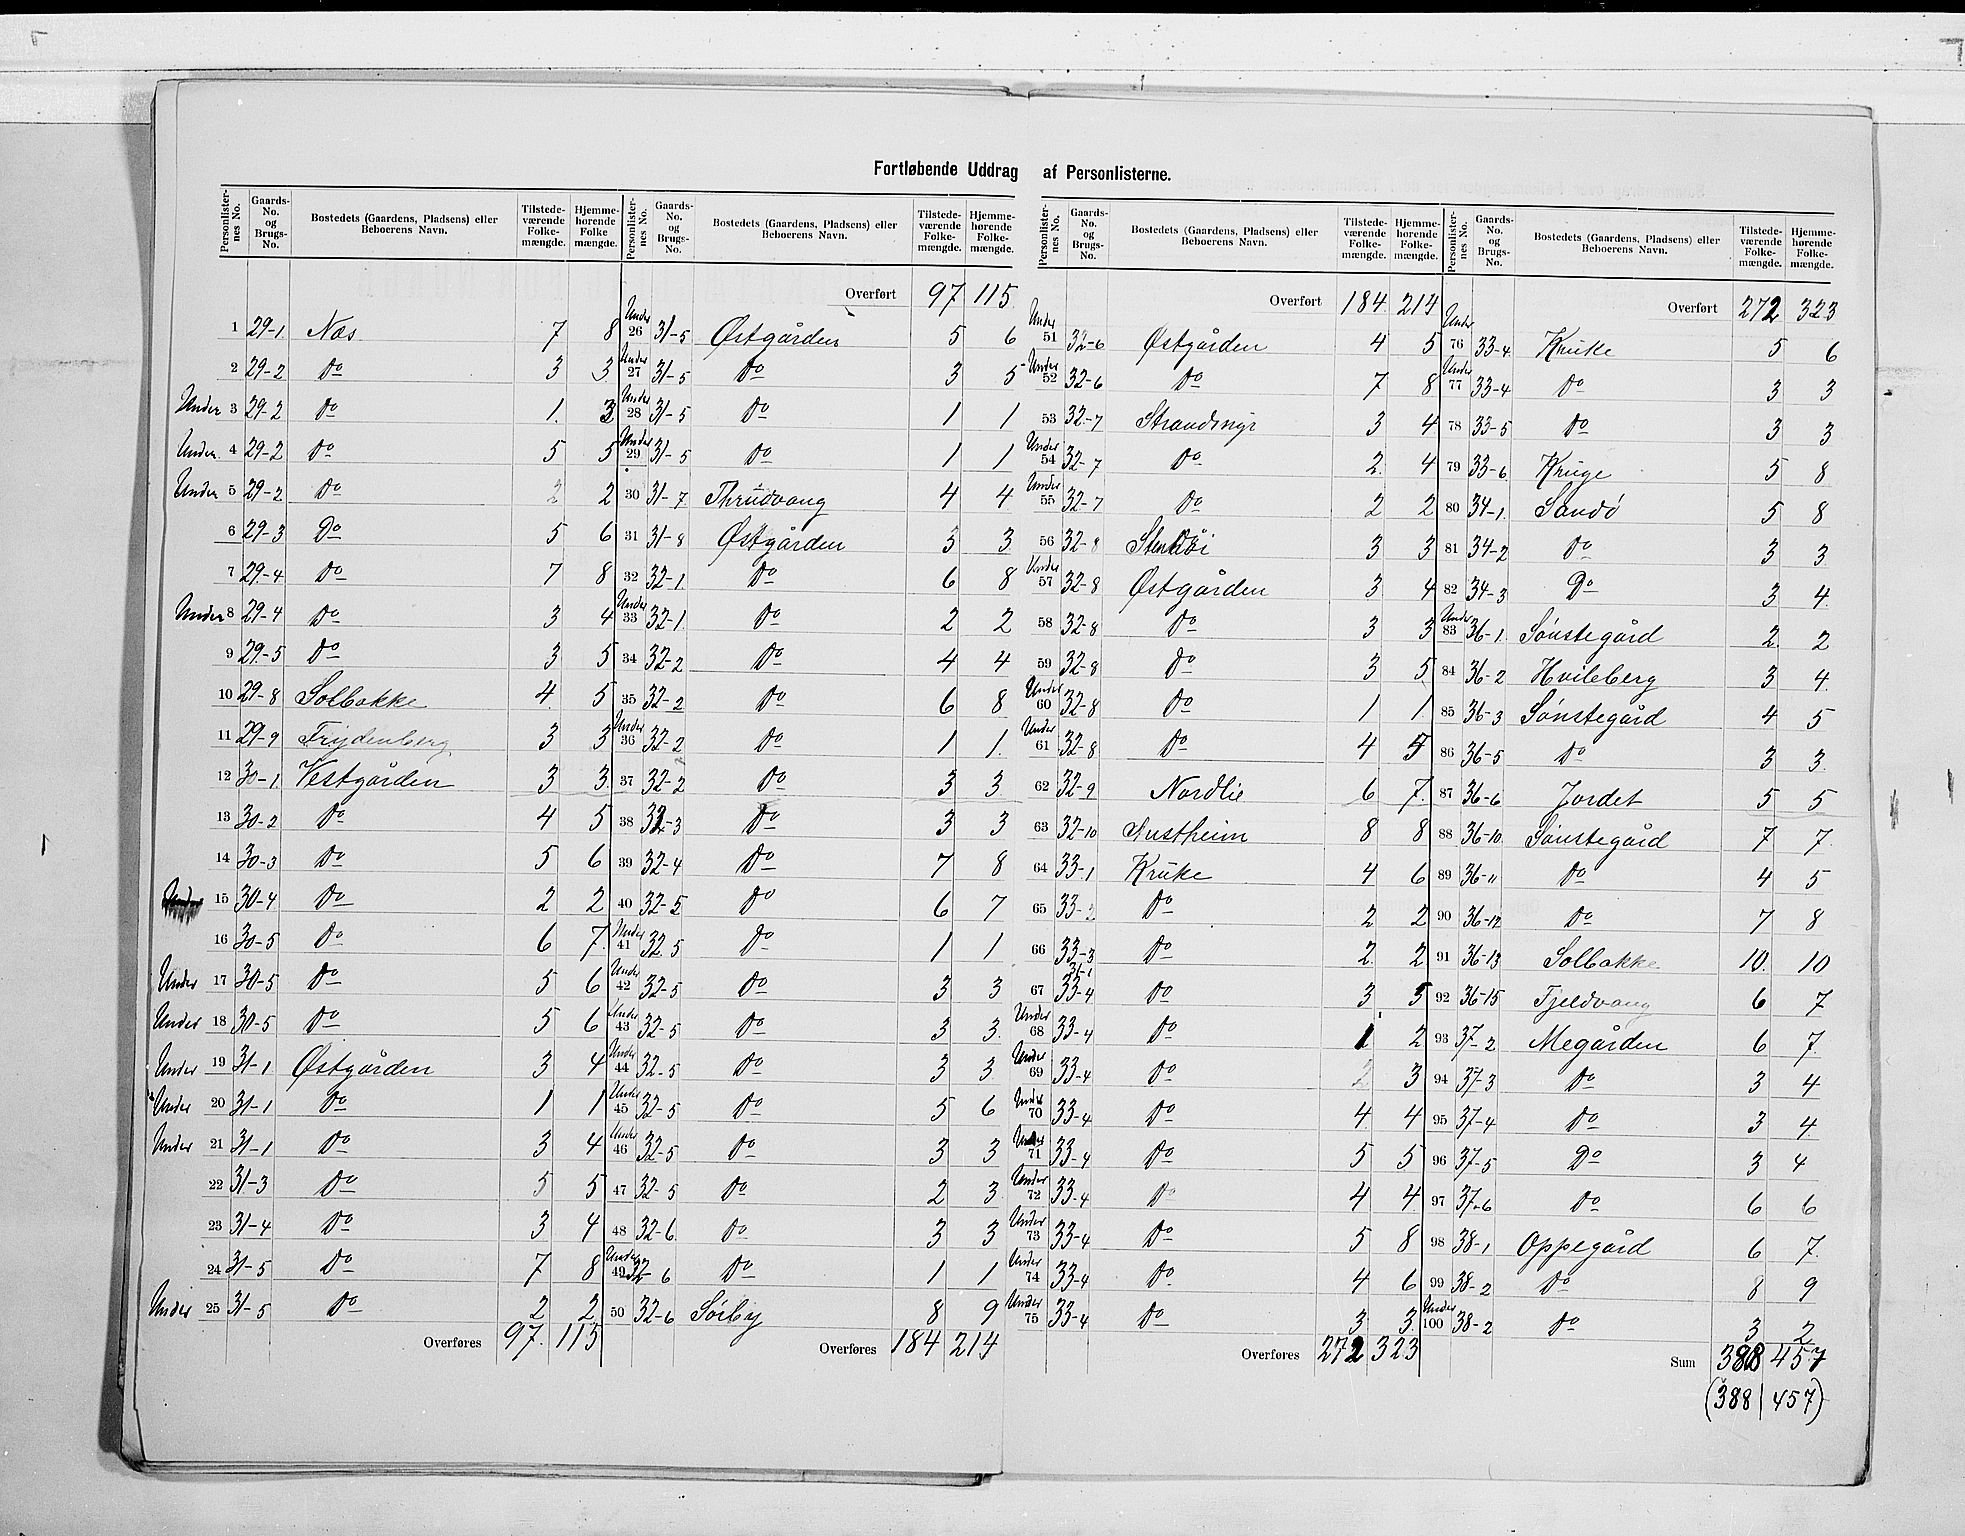 Fortløbende Uddrag af Personlisterne.
Personlisternes No. Gaards-No. og Brugs-No. Bostedets (Gaardens, Pladsens) eller Beboerens Navn. Tilstedeværende Folkemængde. Hjemmehørende Folkemængde.
1 29-1. Næs 7 8
2 29-2 Do 3 3
Under 3 29-2 Do 1. 3
Under 4 29-2 Do 5 5
Under 5 29-2 Do 2 2
6 29-3 Do 5 6
7 29-4 Do 7 8
Under 8 29-4 Do 3 4
9 29-5 Do 3 5
10 29-8 Solbakke 4 5
11 29-9 Frydenberg 3 3
12 30-1 Vestgården 3 3
13 30-2 Do 4 5
14 30-3 Do 5 6
15 30-4 Do 2 2
16 30-5 Do 6 7
Under 17 30-5 Do 5 6
Under 18 30-5 Do 5 6
Under 19 31-1 Østgården 3 4
Under 20 31-1 Do 1 1
Under 21 31-1 Do 3 4
22 31-3 Do 5 5
23 31-4 Do 3 4
24 31-5 Do 7 8
Under 25 31-5 Do 2 2
Overføres 97. 115
Personlisternes No. Gaards-No. og Brugs-No. Bostedets (Gaardens, Pladsens) eller Beboerens Navn. Tilstedeværende Folkemængde. Hjemmehørende Folkemængde.
Overført 97 115
Under 26 31-5 Østgården 5 6
Under 27 31-5 Do 3 5
Under 28 31-5 Do 1 1
Under 29 31-5 Do 1 1
30 31-7 Thrudvang 4 4
31 31-8 Østgården 3 3
32 32-1 Do 6 8
Under 33 32-1 Do 2 2
34 32-2 Do 4 4
35 32-2 Do 6 8
Under 36 32-2 Do 1 1.
37 32-2 Do 3 3
38 32-3 Do 3 3
39 32-4 Do 7 8
40 32-5 Do 6 7
Under 41 32 5 Do 1 1
Under 42 32-5 Do 3 3
Under 43 32-5 Do 3 3
Under 44 32-5 Do 3 3
Under 45 32-5 Do 5 6
Under 46 32-5 Do 3 3
47 32-5 Do 2 3
48 32-6 Do 3 3
Under 49 32-6 Do 1 1
50 32-6 Sørby 8 9
Overføres 184 214
Personlisternes No. Gaards-No. og Brugs-No. Bostedets (Gaardens, Pladsens) eller Beboerens Navn. Tilstedeværende Folkemængde. Hjemmehørende Folkemængde.
Overført 184 214
Under 51 32-6 Østgården 4 5
Under 52 32-6 Do 7 8
53 32-7 Strandmyr 3 4
Under 54 32-7 Do 2 4
Under 55 32-7 Do 2 2
56 32-8 3 3
Under 57 32-8 Østgården 3 4
58 32-8 Do 3 3
59 32-8 Do 3 5
Under 60 32-8 Do 1 1
Under 61 32-8 Do 4 5
62 32-9 Nordlie 6 7
63 32-10 Austheim 8 8
64 33-1 Kruke 4 6
65 33-2 Do 2 2
66 33-3 Do 2 2
67 31-1 33-4 Do 3 5
Under 68 33-4 Do 1 2
Under 69 33-4 Do 2 3
Under 70 33-4 Do 4 4
Under 71 33-4 Do 5 5
Under 72 33-4 Do 4 4
Under 73 33-4 Do 5 8
Under 74 33-4 Do 4 6
Under 75 33-4 Do 3 3
Overføres 272 323
Personlisternes No. Gaards-No. og Brugs-No. Bostedets (Gaardens, Pladsens) eller Beboerens Navn. Tilstedeværende Folkemængde. Hjemmehørende Folkemængde.
Overført 272 323
Under 76 33-4 Kruke 5 6
Under 77 33-4 Do 3 3
78 33-5 Do 3 3
79 33-6 Kruge 5 8
80 34-1. Sandø 5 8
81 34-2 Do 3 3
82 34-3 Do 3 4
Under 83 36-1. Sønstegård 2 2
84 36-2 Hvileberg 3 4
85 36-3 Sønstegård 4 5
86 36-5 Do 3 3
87 36-6 Jordet 5 5
88 36-10 Sønstegård 7 7
89 36-11 Do 4 5
90 36-12 Do 7 8
91 36-13 Solbakke 10 10
92 36-15 Fjeldvang 6 7
93 37-2 Megården 6 7
94 37-3 Do 3 4
95 37-4 Do 3 4
96 37-5 Do 3 4
97 37-6 Do 6 6
98 38-1 Oppegård 6 7
99 38-2 Do 8 9
Under 100 38-2 Do 3 2
Sum 388 457
(388 | 457)